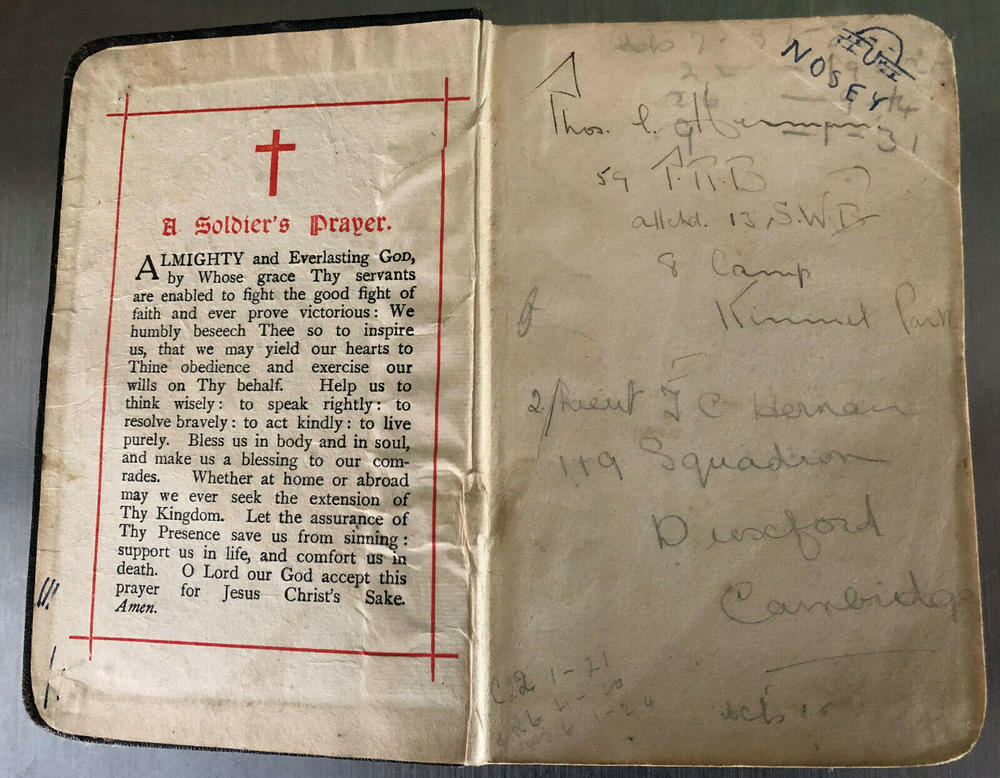 A Soldier's Prayer.
ALMIGHTY and Everlasting GOD,
by Whose grace Thy servants
are enabled to fight the good fight of
faith and ever prove victorious: We
humbly beseech Thee so to inspire
us, that we may yield our hearts to
Thine obedience and exercise our
wills on Thy behalf. Help us to
think wisely: to speak rightly: to
resolve bravely: to act kindly: to live
purely. Bless us in body and in soul,
and make us a blessing to our com-
rades. Whether at home or abroad
may we ever seek the extension of
Thy Kingdom. Let the assurance of
Thy Presence save us from sinning:
support us in life, and comfort us in
death. O Lord our God accept this
prayer for Jesus Christ's Sake.
Amen.
NOSEY
Thos. C.
59 T.R.B
attchd. 13 S.W.B
8 Camp
Kinmel Park
2/Lieut T C Herman
119 Squadron
Duxford
Cambridge
1-21